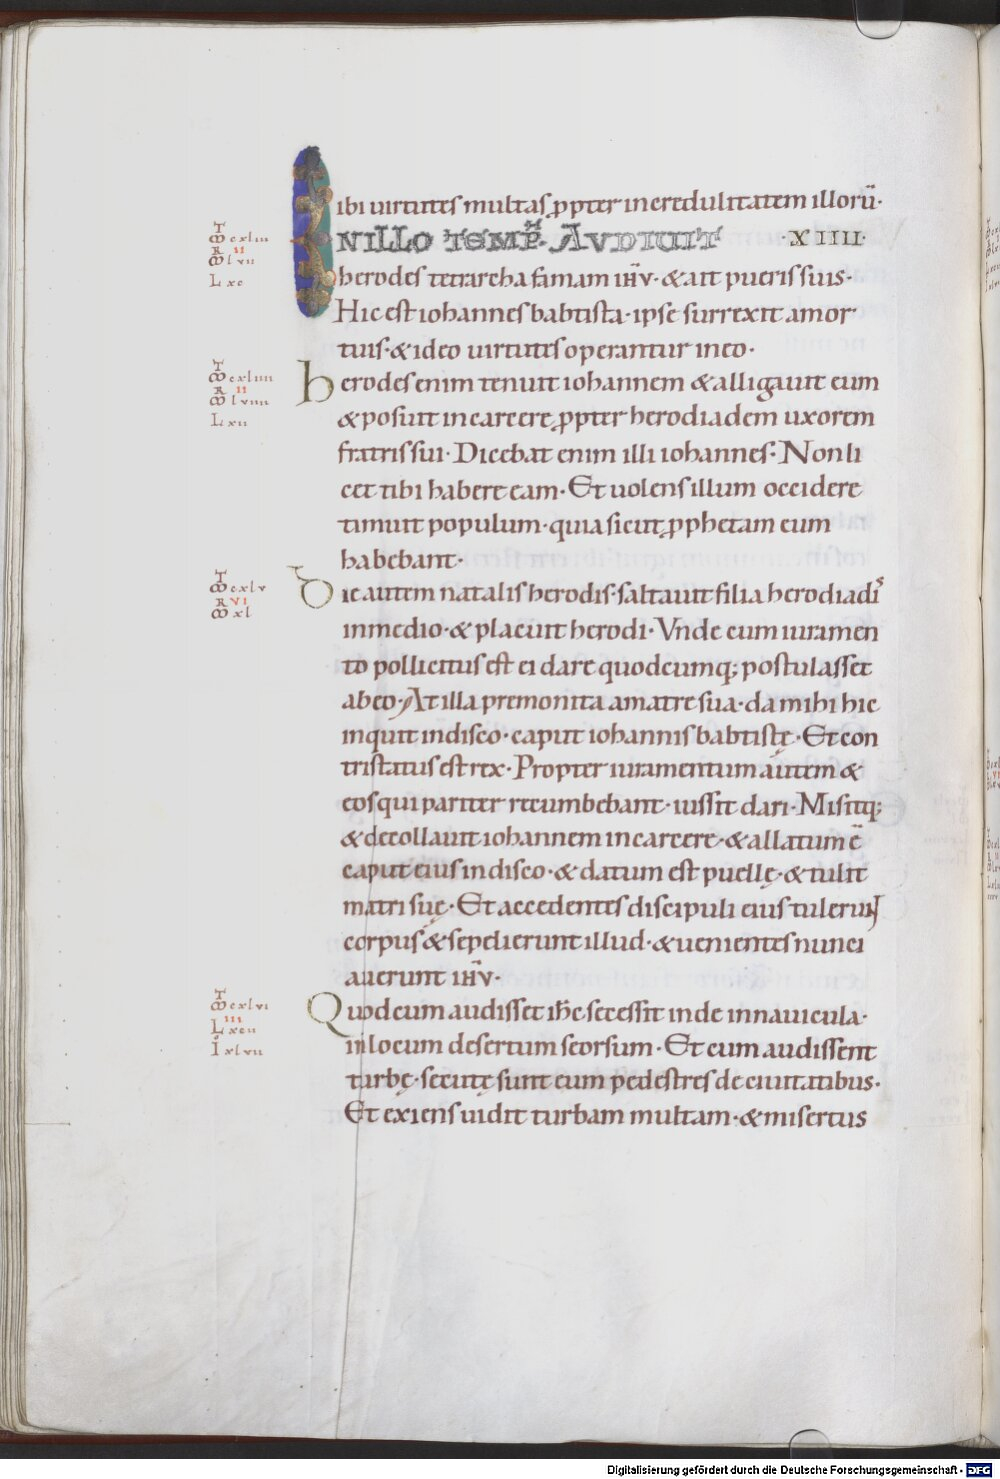 ibi uirtutes multas ꝓpter incredulitatem illorū·
IN ILLO TEMP̄R· AVDIUIT · XIIII·
herodes tetrarcha famam iħv̄· & ait pueris suis·
Hic est iohannes babtista· ipse surrexit amor
tuis· & ideo uirtutes operantur in eo·
herodes enim tenuit iohannem & alligauit eum
& posuit in carcere ꝓpter herodiadem uxorem
fratris sui· Dicebat enim illi iohannes· Non li
cet tibi habere eam· Et uolens illum occidere
timuit populum· quia sicut ꝓphetam eum
habebant·
Die autem natalis herodis· saltauit filia herodiadis
in medio· & placuit herodi· Vnde cum iuramen
to pollicitus est ei dare quodcumq; postulasset
ab eo· At illa premonita a matre sua· da mihi hic
inquit in disco· caput iohannis babtistę· Et con
tristatus est rex· Propter iuramentum autem &
eos qui pariter recumbebant· iussit dari· Misitq;
& decollauit iohannem in carcere· & allatum ē
caput eius in disco· & datum est puellę· & tulit
matri suę· Et accedentes discipuli eius tulerunt
corpus & sepelierunt illud· & uenientes nunci
auerunt iħv̄·
Quod cum audisset iħc· secessit inde in nauicula·
in locum desertum seorsum· Et cum audissent
turbę· secutę sunt eum pedestres de ciuitatibus·
Et exiens uidit turbam multam· & misertus
T
ꝏ cxliii
R II
ꝏ lvii
L xc
T
ꝏ cxliiii
R II
ꝏ lviiii
L xii
T
ꝏ cxlv
R VI
ꝏ xl
T
ꝏ cxlvi
III
L xcii
I xlvii
Digitalisierung gefördert durch die Deutsche Forschungsgemeinschaft - DFG